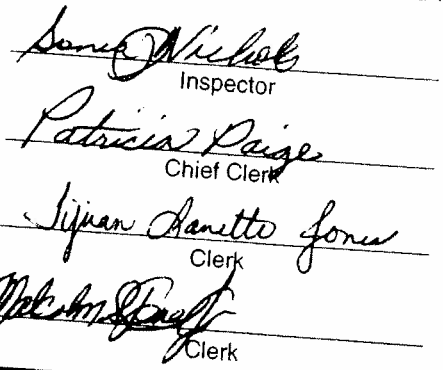 Sonia Nichols
Inspector
Patricia Paige
Chief Clerk
Tijuan Lanette Jones
Clerk
Malcolm
Clerk